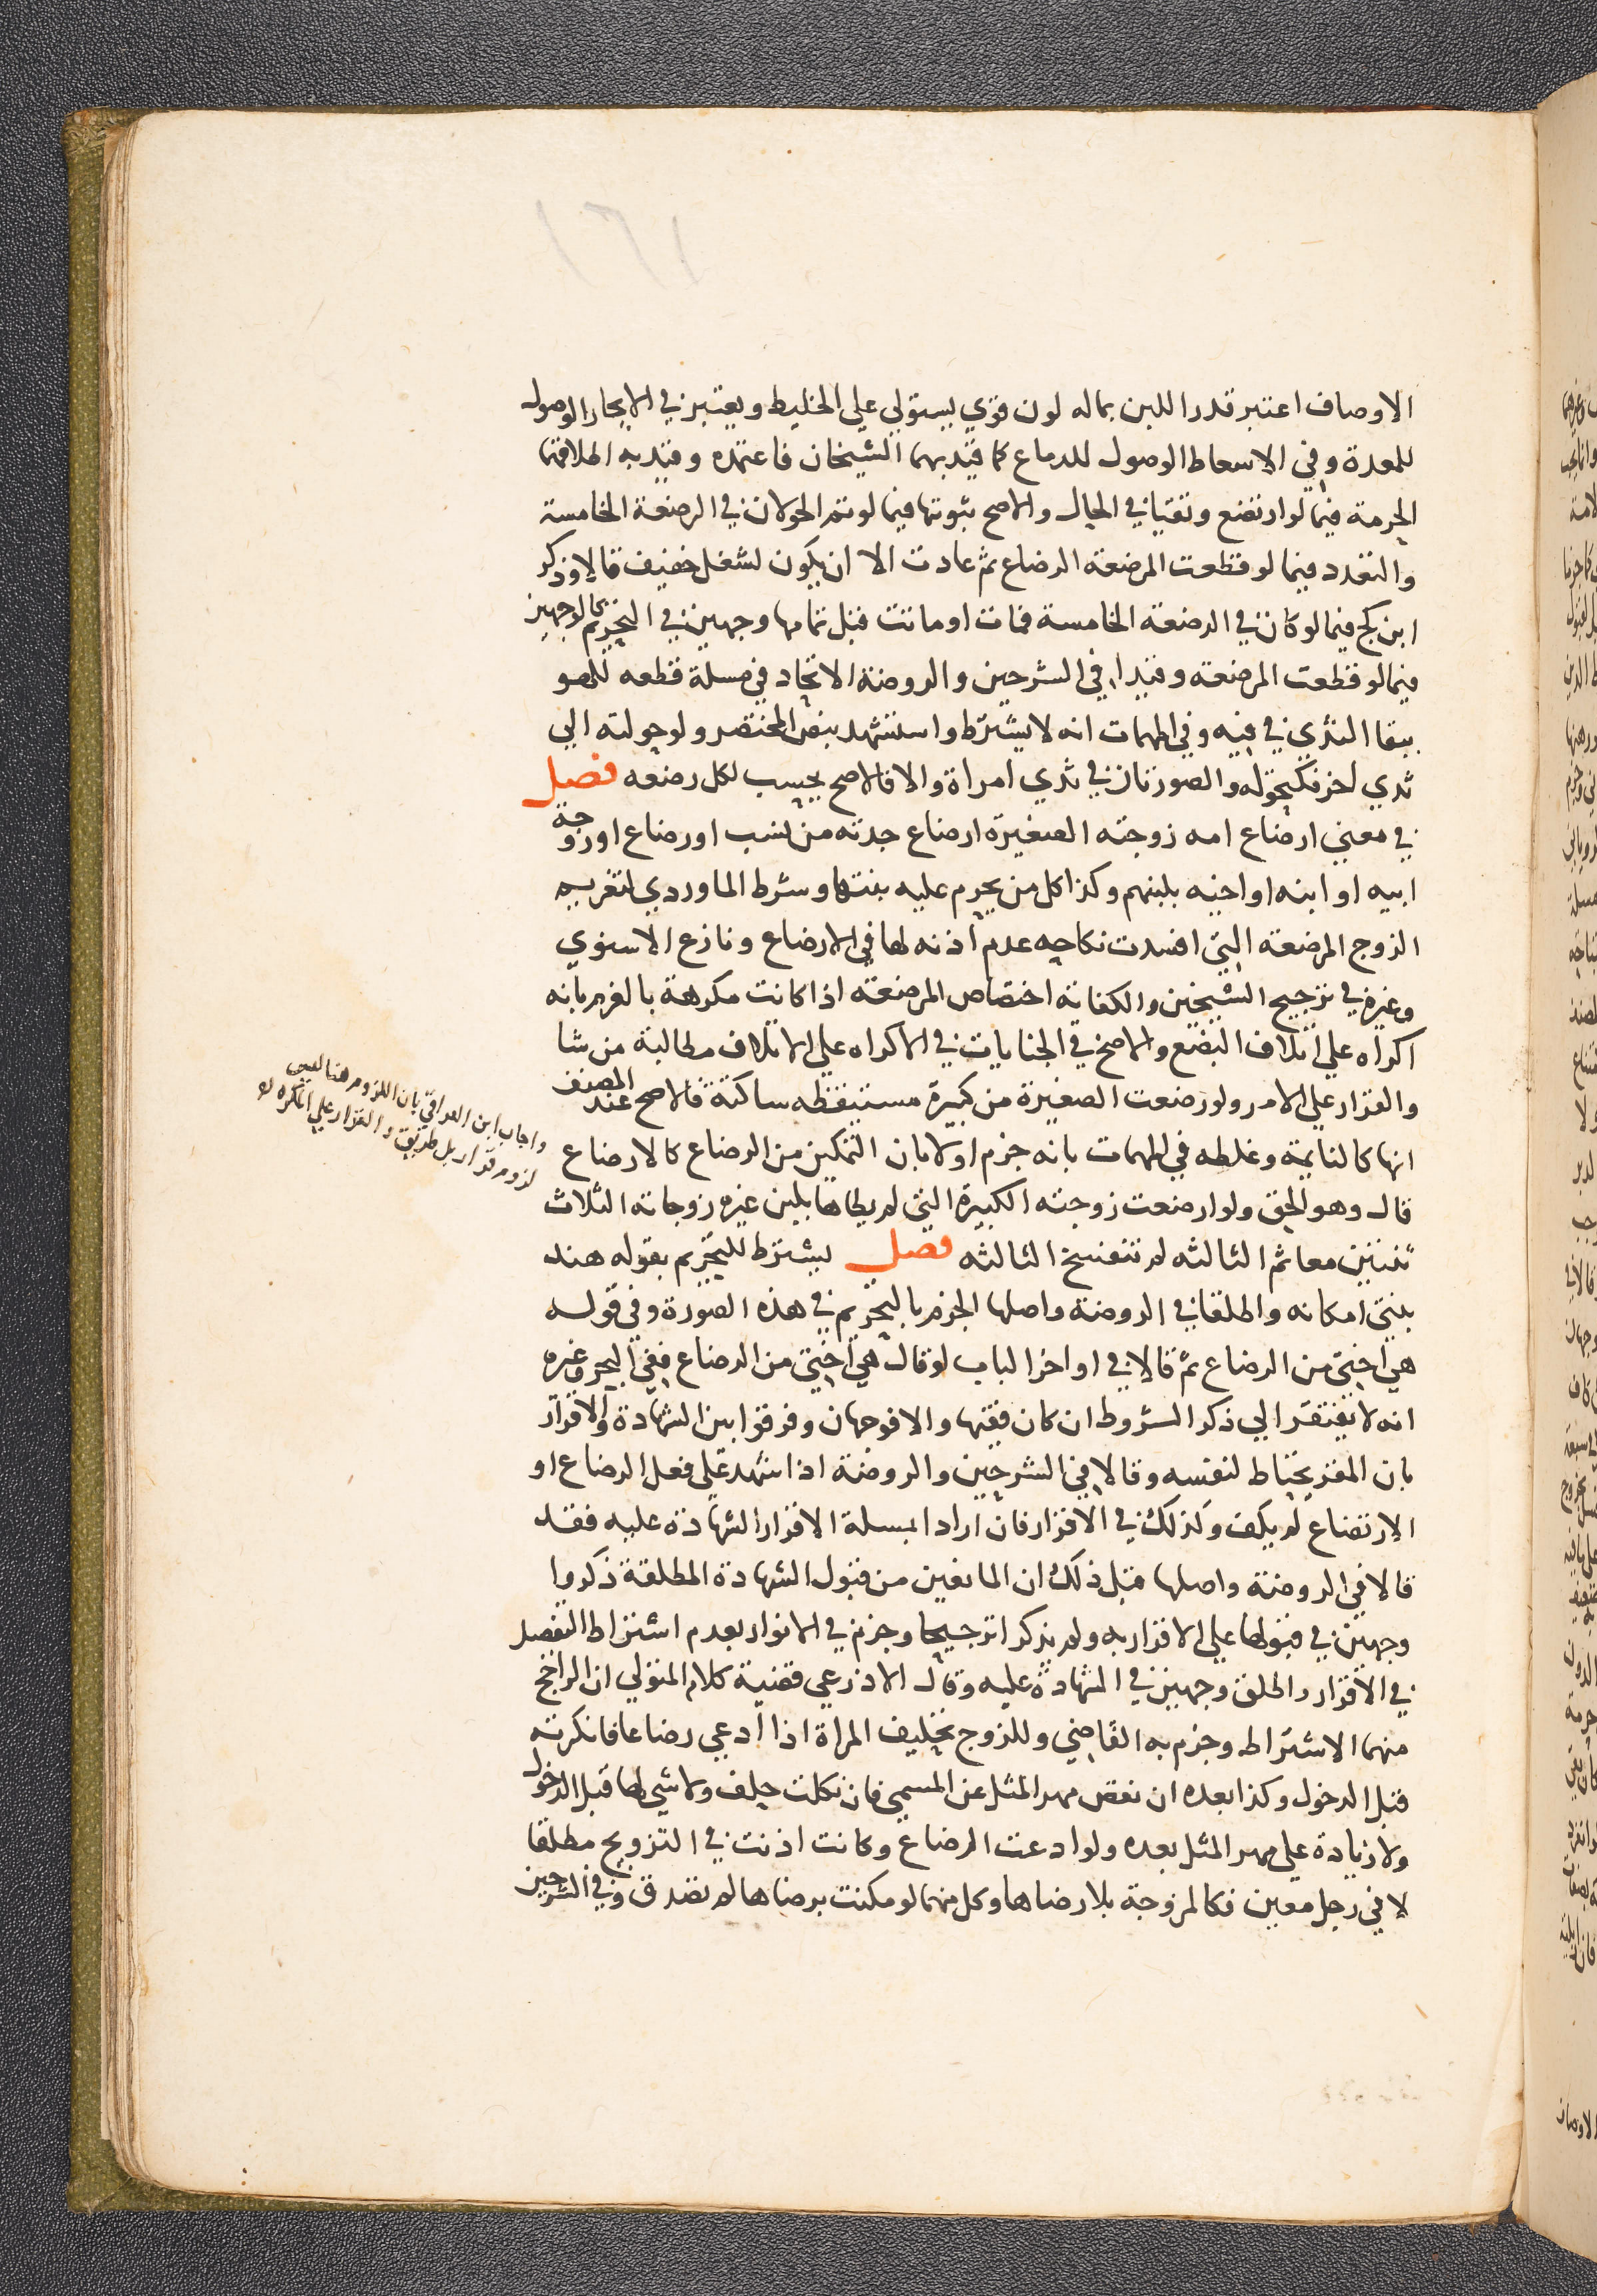 الاوصاف اعتبر قدر اللبن بماله لون قوي يستولي علي الخليط ويعتبر في الايجار الوصول
للمعدة وفي الاسعاط الوصول للدماع كما قيد بهما الشيخان فاعتمده وقيد به اطلاقهما
الحرمة فيما لو ارتضع وتقيا في الحال والاصح ثبوتها فيما لو تم الحولان في الرضعة الخامسة
والتعدد فيما لو قطعت المرضعة الرضاع ثم عادت الا ان يكون لشغل خفيف قالا وذكر
ابن كج فيما لو كان في الرضعة الخامسة فمات او ماتت قبل تمامها وجهين في التحريم كالوجهين
فيما لو قطعت المرضعة وقيدا في الشرحين والروضة الاتحاد في مسلة قطعه للهو
ببقا الثدي في فيه وفي المهمات انه لا يشترط واستشهد بنص المختصر ولو حولته الي
ثدي اخر فكتحوله والصورتان في ثدي امراة والا فالاصح يحسب لكل رضعه فصل
في معني ارضاع امه زوجته الصغيرة ارضاع جدته من نسب او رضاع او زوجة
ابيه او ابنه او اخيه بلبنهم وكذا كل من يحرم عليه بنتها وشرط الماوردي لتغريم
الزوج المرضعة التي افسدت نكاحه عدم اذنه لها في الارضاع ونازع الاسنوي
وغيره في ترجيح الشيخين والكفاية اختصاص المرضعة اذا كانت مكرهة بالغرم بانه
اكراه علي اتلاف البضع والاصح في الجنايات في الاكراه علي الاتلاف مطالبة من شا
والقرار علي الامر ولو رضعت الصغيرة من كبيرة مستيقظه ساكتة فالاصح عند المصنف
انها كالنايمة وغلطه في المهمات بانه جزم اولا بان التمكين من الرضاع كالارضاع
قال وهو الحق ولو ارضعت زوجته الكبيرة التي لم يطاها بلبن غيره زوجاته الثلاث
ثنتين معا ثم الثالثه لم تنفسخ الثالثه فصل يشترط للتحريم بقوله هند
بنتي امكانه واطلقا في الروضة واصلها الجزم بالتحريم في هذه الصورة وفي قوله
هي اختي من الرضاع ثم قالا في اواخر الباب لو قال هي اختي من الرضاع ففي البحر وغيره
انه لا يفتقر الي ذكر الشروط ان كان فقيها والا فوجهان وفرقوا بين الشهادة والاقرار
بان المقر يحتاط لنفسه وقالا في الشرحين والروضة اذا شهد علي فعل الرضاع او
الارتضاع لم يكف وكذلك في الاقرار فان ارادا بمسلة الاقرار الشهادة عليه فقد
قالا في الروضة واصلها قبل ذلك ان المانعين من قبول الشهادة المطلقة ذكروا
وجهين في قبولها علي الاقرار به ولم يذكرا ترجيحا وجزم في الانوار بعدم اشتراط التفصيل
في الاقرار واطلق وجهين في الشهادة عليه وقال الاذرعي قضية كلام المتولي ان الراجح
منهما الاشتراط وجزم به القاضي وللزوج تحليف المراة اذا ادعي رضاعا فانكرته
قبل الدخول وكذا بعده ان نقص مهر المثل عن المسمي فان نكلت حلف ولا شي لها قبل الدخول
ولا زيادة علي مهر المثل بعده ولو ادعت الرضاع وكانت اذنت في التزويج مطلقا
لا في رجل معين فكالمزوجة بلا رضاها وكل منهما لو مكنت برضاها لم تصدق وفي الشرحين
واجاب ابن العراقي بان اللزوم هنا ليس
لزوم قرار بل طريق والقرار علي المكره له